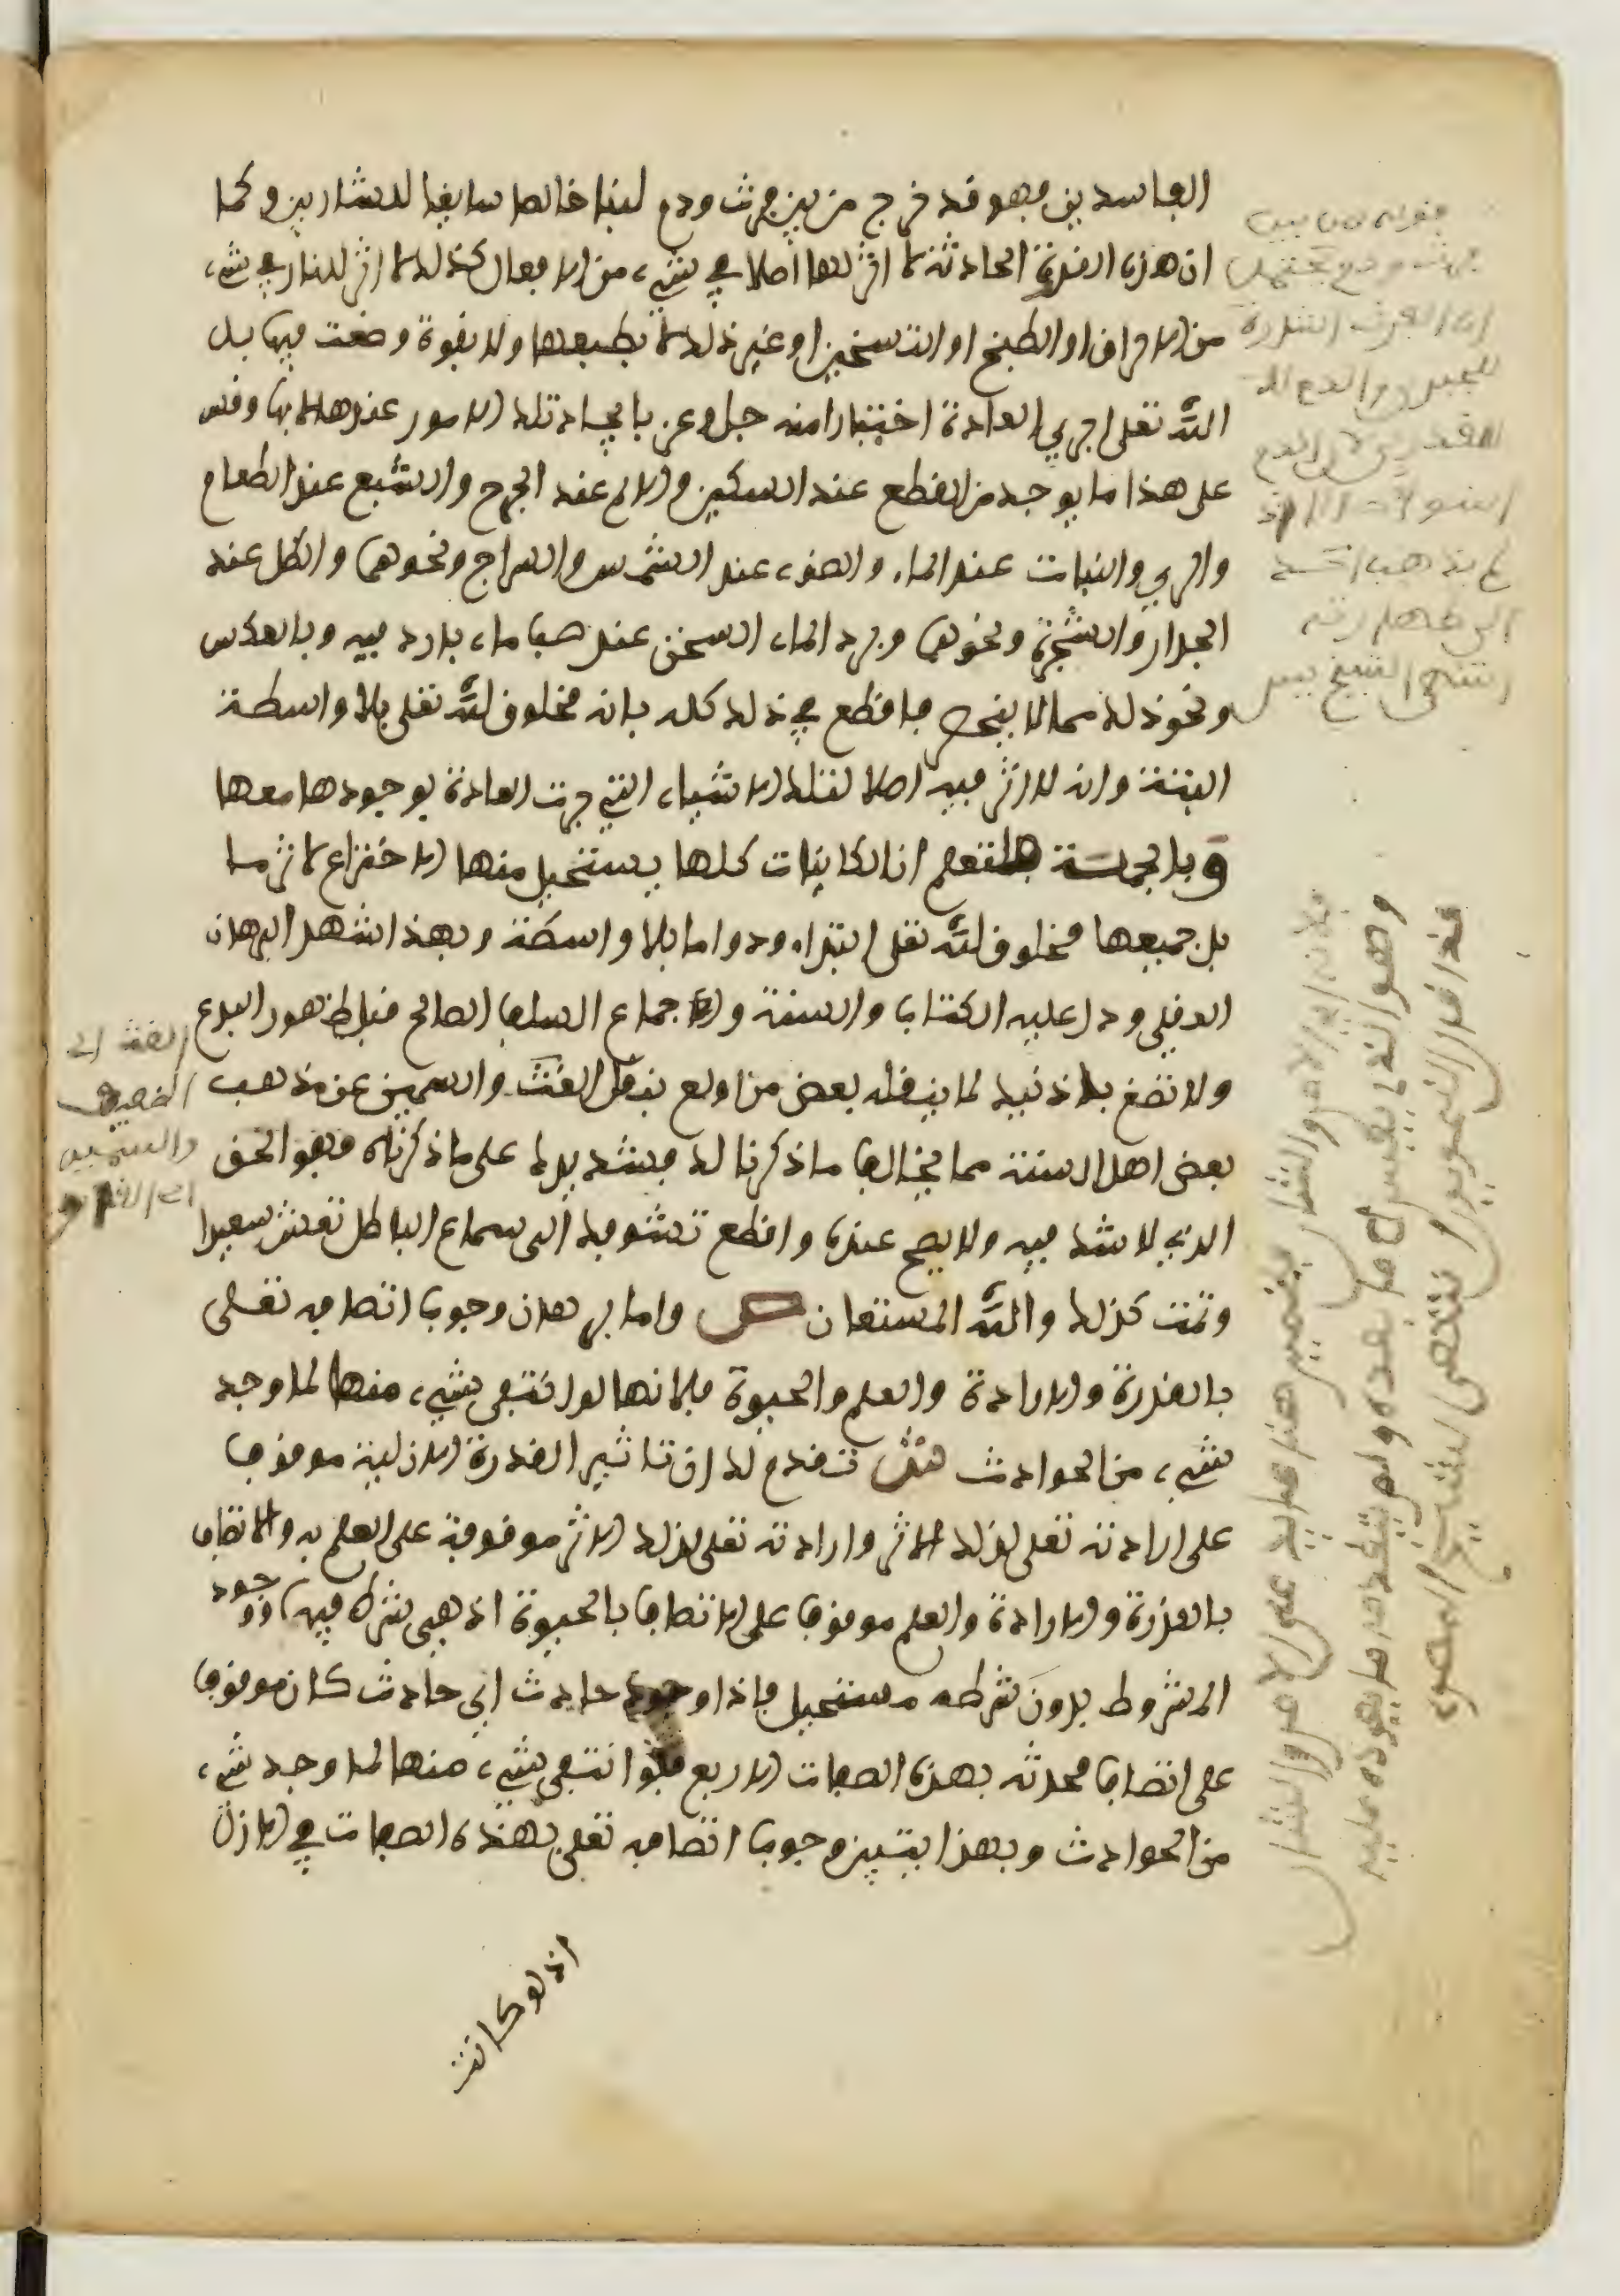 الفاسدين فهو قد خرج من بين فرث ودم لبنا خالصا سايغا للشاربين وكما
ان هذه القدرة الحادثة لا اثر لها اصلا في شيء من الافعال كذلك لا اثر للنار في شيء
من الاحراق او الطبخ او التسخين او غير ذلك لا بطبعها ولا بقوة وضعت فيها بل
الله تعلى اجرى العادة اختيارا منه جل وعز بايجاد تلك الامور عندها لا بها وقس
على هذا ما يوجد من القطع عند السكين والالم عند الجرح والشبع عند الطعام
والري والنبات عند الماء والضوء عند الشمس والسراج ونحوهما والظل عند
الجدار والشجرة ونحوهما وبرد الماء السخن عند صب ماء بارد فيه وبالعكس
ونحو ذلك مما لا ينحصر فاقطع في ذلك كله بانه مخلوق لله تعلى بلا واسطة
البتة وانه لا اثر فيه اصلا لتلك الاشياء التي جرت العادة بوجودها معها
وبالجملة فلتعلم ان الكاينات كلها يستحيل منها الاختراع لاثر ما
بل جميعها مخلوق لله تعلى ابتداء ودواما بلا واسطة وبهذا شهد البرهان
العقلي ودل عليه الكتاب والسنة واجماع السلف الصالح قبل ظهور البدع
ولا تصغ باذنيك لما ينقله بعض من اولع بنقل الغث والسمين عن مذهب
بعض اهل السنة مما يخالف ما ذكرنا لك فشد يدك على ما ذكرناه فهو الحق
الذي لا شك فيه ولا يصح غيره واقطع تشوفك الى سماع الباطل تعش سعيدا
وتمت كذلك والله المستعان ص واما برهان وجوب اتصافه تعلى
بالقدرة والارادة والعلم والحيوة فلانها لو انتفى شيء منها لما وجد
شيء من الحوادث ش تقدم لك ان تاثير القدرة الازلية موقوف
على ارادته تعلى لذلك الاثر وارادته تعلى لذلك الاثر موقوفة على العلم به والاتصاف
بالقدرة والارادة والعلم موقوف على الاتصاف بالحيوة اذ هي شرط فيها ووجود
المشروط بدون شرطه مستحيل فاذا وجود حادث اي حادث كان موقوف
على اتصاف محدثه بهذه الصفات الاربع فلو انتفى شيء منها لما وجد شيء
من الحوادث وبهذا يتبين وجوب اتصافه تعلى بهذه الصفات في الازل
اذ لو كانت
قوله من بين
فرث ودم يحتمل
ان الفرث اشارة
للجبر والدم الى
القدر
انتهى الشيخ يس
الغث اي
الضعيف
والسمين